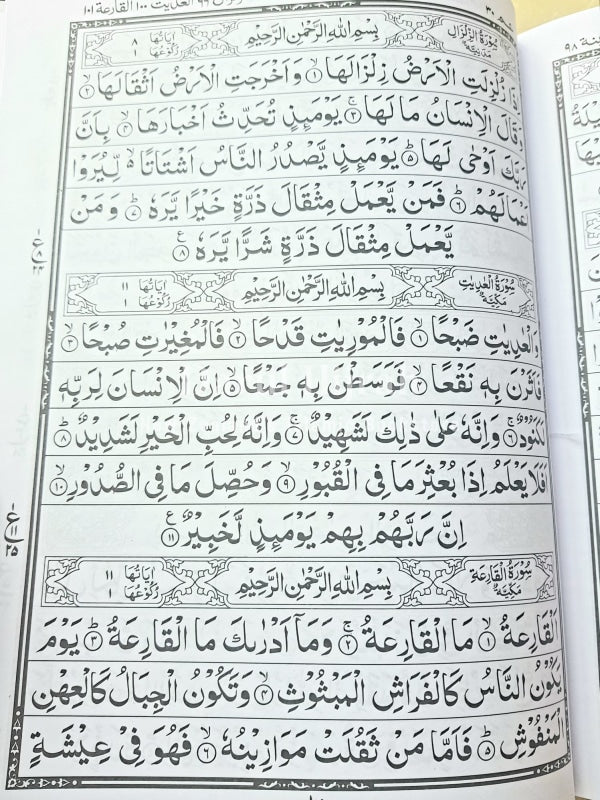 العديت ١٠٠ القارعة ١٠١
سُوْرَةُ الزِّلْزَالِ مَدَنِيَّةٌ بِسْمِ اللهِ الرَّحْمٰنِ الرَّحِيْمِ اٰيَاتُهَا ٨ رُكُوْعُهَا ١
اِذَا زُلْزِلَتِ الْاَرْضُ زِلْزَالَهَا ۙ﴿۱﴾ وَاَخْرَجَتِ الْاَرْضُ اَثْقَالَهَا ۙ﴿۲﴾
وَقَالَ الْاِنْسَانُ مَا لَهَا ۚ﴿۳﴾ يَوْمَئِذٍ تُحَدِّثُ اَخْبَارَهَا ۙ﴿۴﴾ بِاَنَّ
رَبَّكَ اَوْحٰى لَهَا ؕ﴿۵﴾ يَوْمَئِذٍ يَّصْدُرُ النَّاسُ اَشْتَاتًا ۙ لِّيُرَوْا
اَعْمَالَهُمْ ؕ﴿۶﴾ فَمَنْ يَّعْمَلْ مِثْقَالَ ذَرَّةٍ خَيْرًا يَّرَهٗ ؕ﴿۷﴾ وَمَنْ
يَّعْمَلْ مِثْقَالَ ذَرَّةٍ شَرًّا يَّرَهٗ ﴿۸﴾ ع
سُوْرَةُ الْعٰدِيٰتِ مَكِّيَّةٌ بِسْمِ اللهِ الرَّحْمٰنِ الرَّحِيْمِ اٰيَاتُهَا ١١ رُكُوْعُهَا ١
وَالْعٰدِيٰتِ ضَبْحًا ۙ﴿۱﴾ فَالْمُوْرِيٰتِ قَدْحًا ۙ﴿۲﴾ فَالْمُغِيْرٰتِ صُبْحًا ۙ﴿۳﴾
فَاَثَرْنَ بِهٖ نَقْعًا ۙ﴿۴﴾ فَوَسَطْنَ بِهٖ جَمْعًا ۙ﴿۵﴾ اِنَّ الْاِنْسَانَ لِرَبِّهٖ
لَكَنُوْدٌ ۚ﴿۶﴾ وَاِنَّهٗ عَلٰى ذٰلِكَ لَشَهِيْدٌ ۚ﴿۷﴾ وَاِنَّهٗ لِحُبِّ الْخَيْرِ لَشَدِيْدٌ ؕ﴿۸﴾
اَفَلَا يَعْلَمُ اِذَا بُعْثِرَ مَا فِى الْقُبُوْرِ ۙ﴿۹﴾ وَحُصِّلَ مَا فِى الصُّدُوْرِ ۙ﴿۱۰﴾
اِنَّ رَبَّهُمْ بِهِمْ يَوْمَئِذٍ لَّخَبِيْرٌ ﴿۱۱﴾ ع
سُوْرَةُ الْقَارِعَةِ مَكِّيَّةٌ بِسْمِ اللهِ الرَّحْمٰنِ الرَّحِيْمِ اٰيَاتُهَا ١١ رُكُوْعُهَا ١
اَلْقَارِعَةُ ۙ﴿۱﴾ مَا الْقَارِعَةُ ۚ﴿۲﴾ وَمَاۤ اَدْرٰىكَ مَا الْقَارِعَةُ ؕ﴿۳﴾ يَوْمَ
يَكُوْنُ النَّاسُ كَالْفَرَاشِ الْمَبْثُوْثِ ۙ﴿۴﴾ وَتَكُوْنُ الْجِبَالُ كَالْعِهْنِ
الْمَنْفُوْشِ ؕ﴿۵﴾ فَاَمَّا مَنْ ثَقُلَتْ مَوَازِيْنُهٗ ۙ﴿۶﴾ فَهُوَ فِىْ عِيْشَةٍ